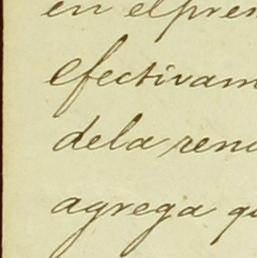 en elpres
efectivam
dela ren
agrega q